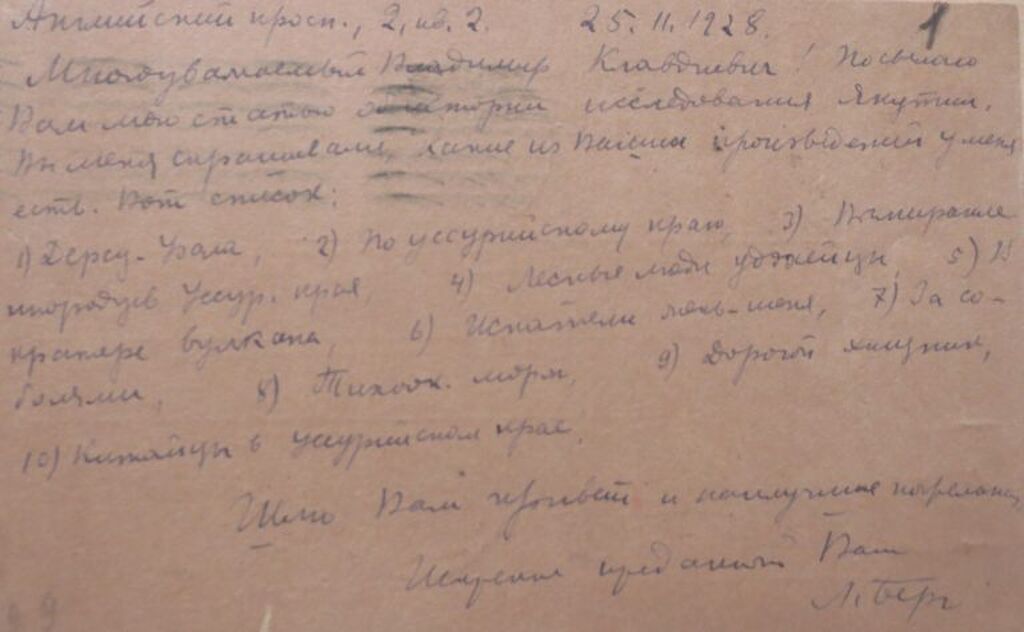 Английский просп., 2, кв. 2. 25. II. 1928. 1
Многоуважаемый Владимир Клавдиевич! Посылаю
Вам мою статью об истории исследования Якутии.
Вы меня спрашивали, какие из Ваших произведений у меня
есть. Вот список:
1) Дерсу-Узала, 2) По уссурийскому краю, 3) Вымирание
инородцев Уссур. края, 4) Лесные люди удэхейцы, 5) В
кратере вулкана, 6) Искатели жень-шеня, 7) За со-
болями, 8) Тихоок. морж, 9) Дорогой хищник,
10) Китайцы в Уссурийском крае.
Шлю Вам привет и наилучшие пожелания
Искренне преданный Вам
Л. Берг